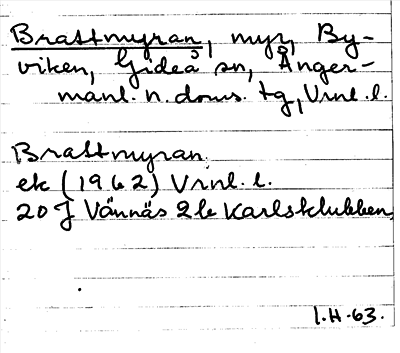 Brattmyran, myr, By-
viken, Gideå sn, Ånger-
manl. n. doms. tg, Vrnl. l.
Brattmyran
ek (1962) Vrnl. l.
20 J Vännäs 2 b Karlsklubben
1.H.63.